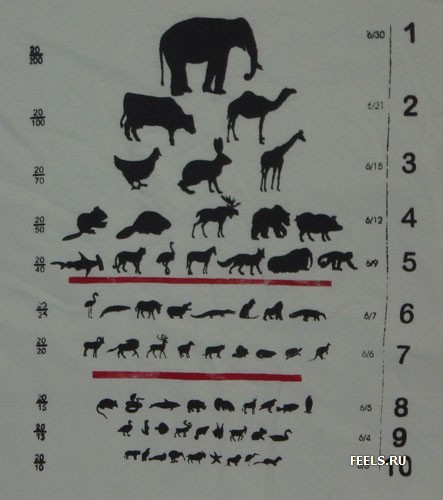 20/200 6/30 1
20/100 6/21 2
20/70 6/15 3
20/50 6/12 4
20/40 6/9 5
20/25 6/7 6
20/20 6/6 7
20/15 6/5 8
20/13 6/4 9
20/10 10
FEELS.RU